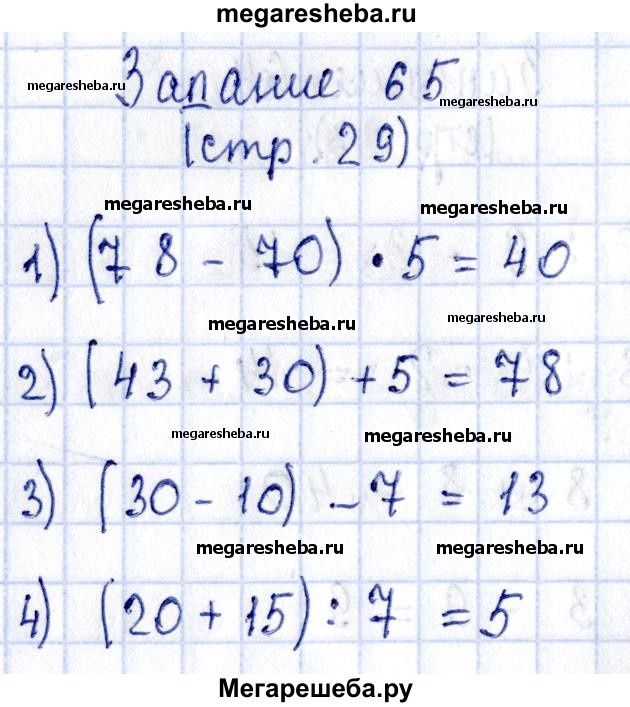 megaresheba.ru
Запание 65
megaresheba.ru
megaresheba.ru
(стр. 29)
megaresheba.ru
megaresheba.ru
1) (78 - 70) · 5 = 40
megaresheba.ru
megaresheba.ru
2) (43 + 30) + 5 = 78
megaresheba.ru
megaresheba.ru
3) (30 - 10) - 7 = 13
megaresheba.ru
megaresheba.ru
4) (20 + 15) : 7 = 5
Мегарешеба.ру